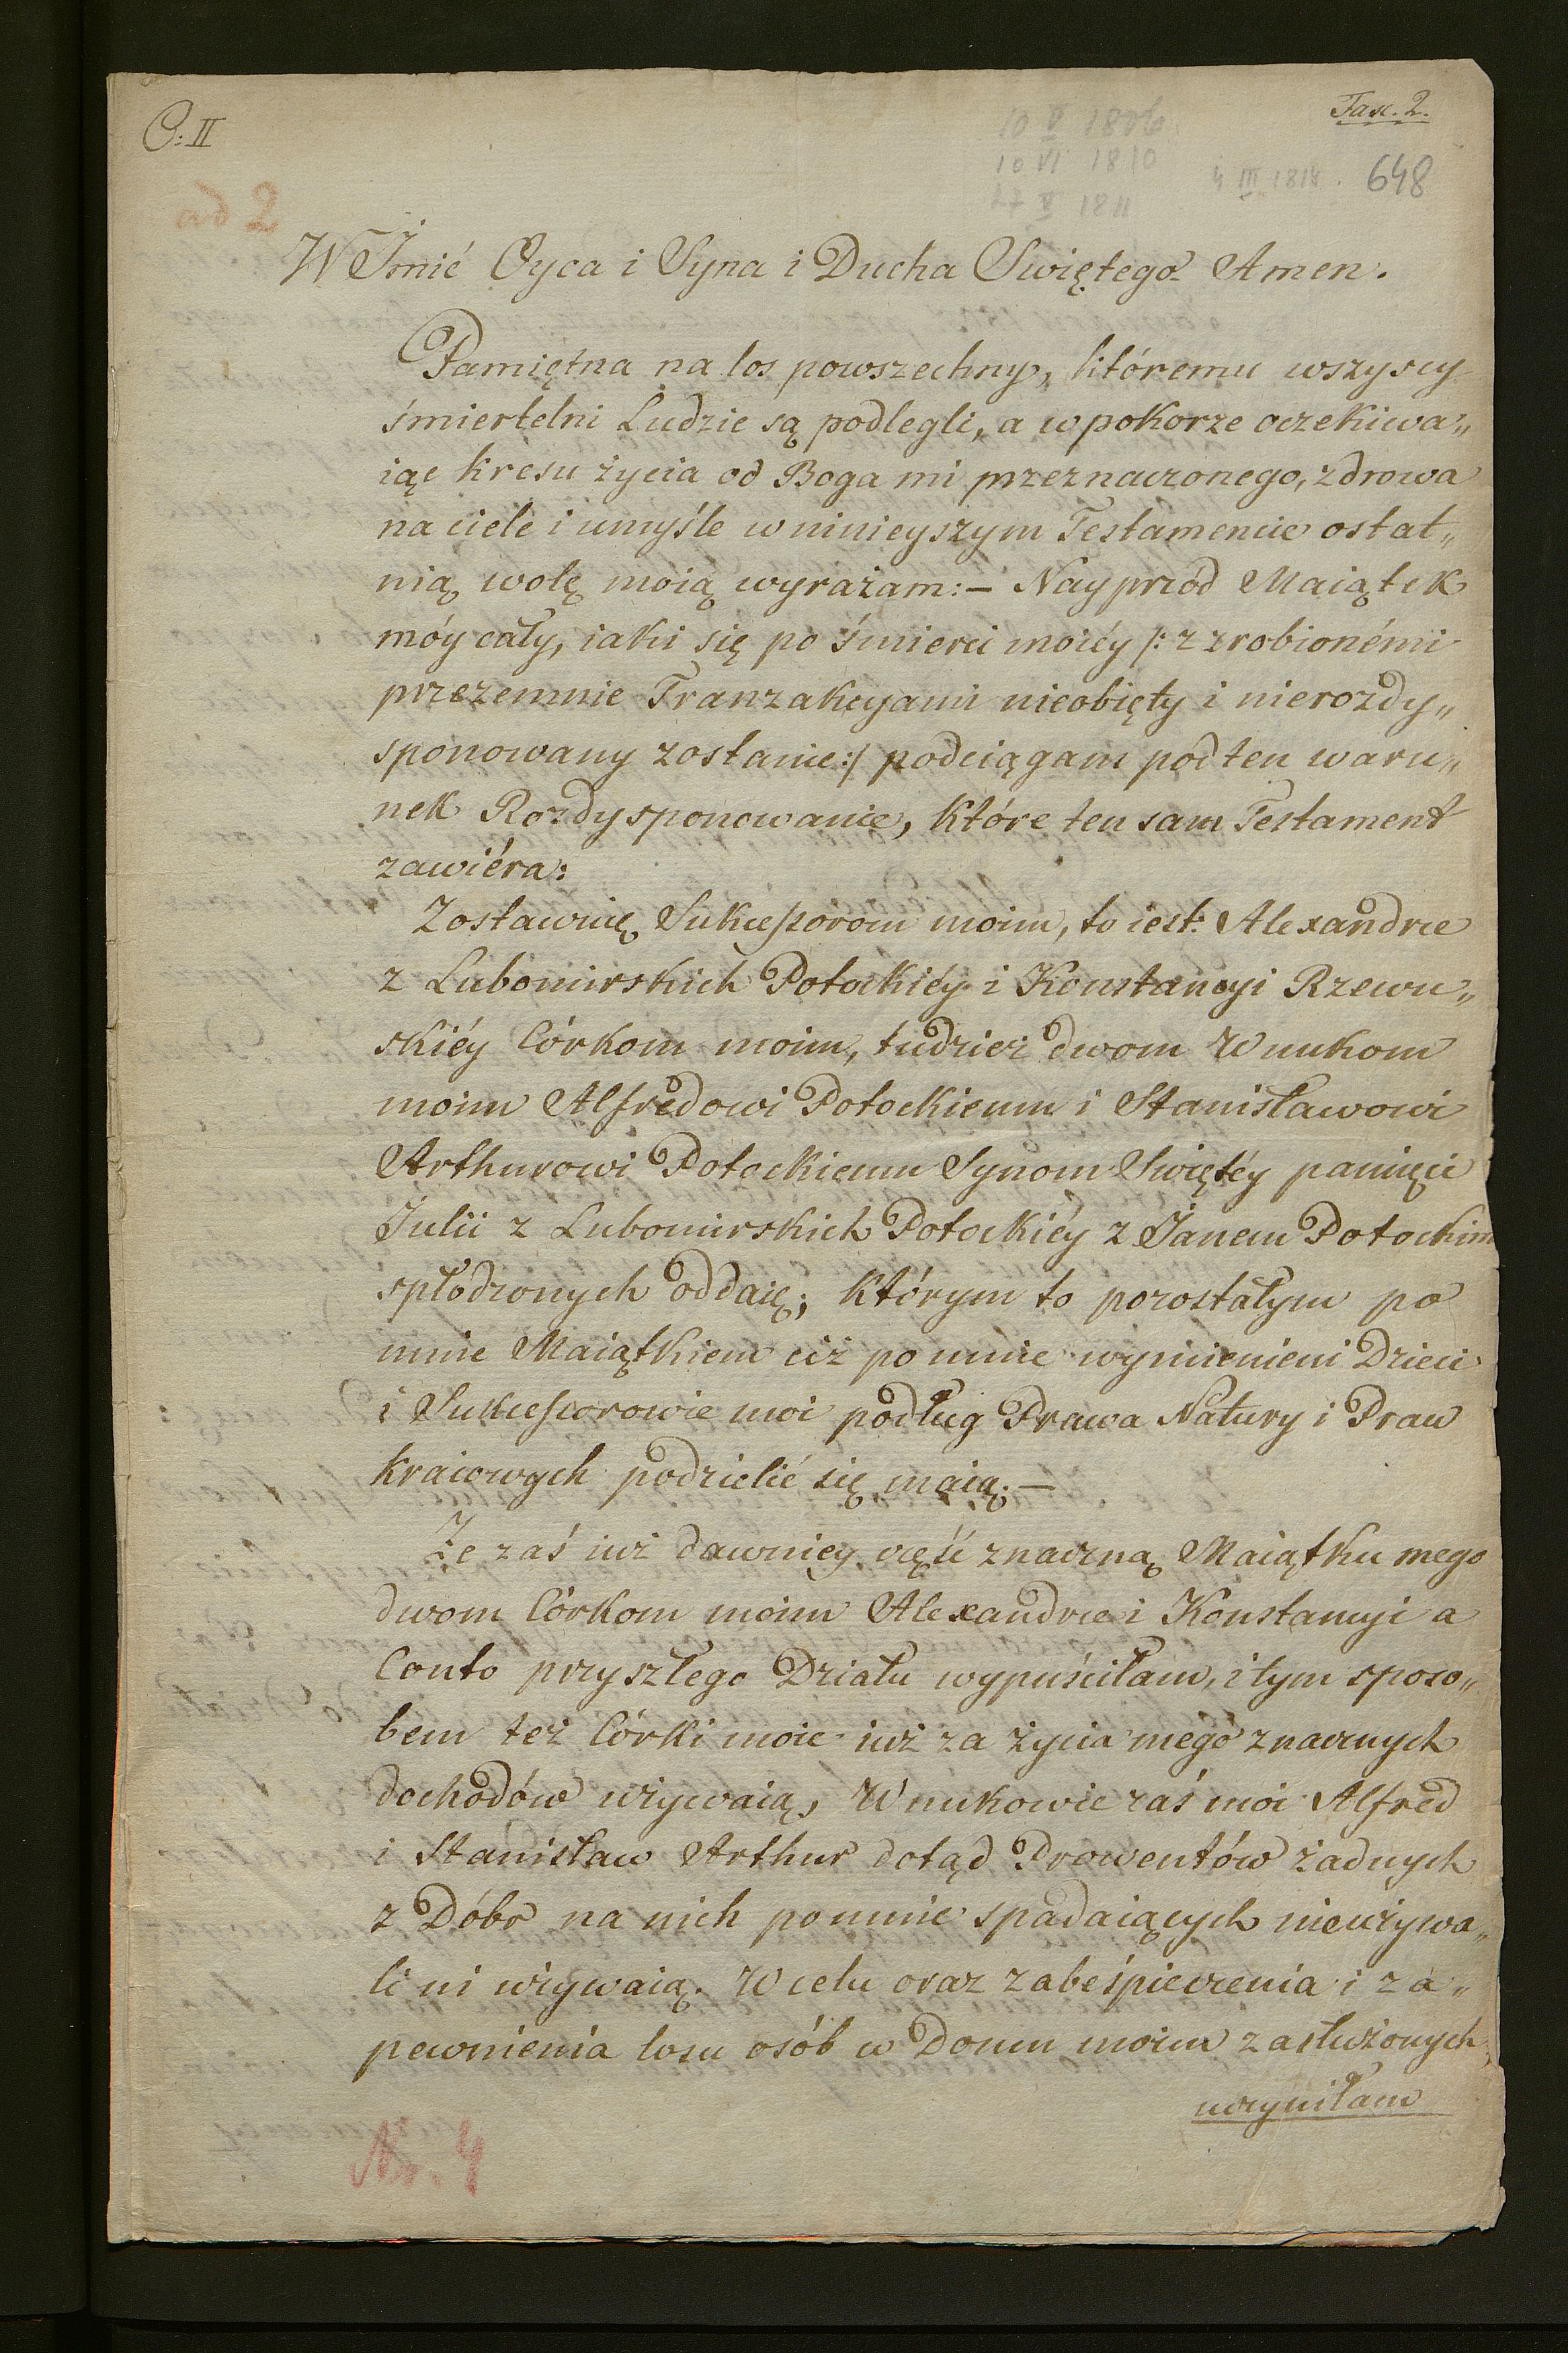 C: II
Fasc. 2.
10 V 1809
10 VI 1810
27 V 1811
4 III 1814. 648
ad 2
W Jmié Oyca i Syna i Ducha Swiętego Amen.
Pamiętna na los powszechny, któremu wszyscy
śmiertelni Ludzie są podlegli, a w pokorze oczekiwa„
iąc kresu życia od Boga mi przeznaczonego, zdrowa
na ciele i umyśle w ninieyszym Testamencie ostat„
nią wolę moią wyrażam:— Nayprzód Maiątek
móy cały, iaki się po śmierci moiéy /: z zrobionémi
przezemnie Tranzakcyami nieobięty i nierozdy„
sponowany zostanie:/ podciągam pod ten waru„
nek Rozdysponowanie, które ten sam Testament
zawiéra:
Zostawuię Sukcessorom moim, to iest: Alexandrze
z Lubomirskich Potockiéy i Konstancyi Rzewu„
skiéy Córkom moim, tudzież dwom Wnukom
moim Alfredowi Potockiemu i Stanisławowi
Arthurowi Potockiemu Synom Swiętéy pamięci
Julii z Lubomirskich Potockiéy z Janem Potockim
spłodzonych oddaię; którym to pozostałym po
mnie Maiątkiem ciż po mnie wymienieni Dzieci
i Sukcessorowie moi podług Prawa Natury i Praw
kraiowych podzielić się maią.—
Że zaś iuż dawniey część znaczną Maiątku mego
dwom Córkom moim Alexandrze i Konstancyi a
Conto przyszłego Działu wypuściłam, i tym sposo„
bem też Córki moie iuż za życia mego znacznych
dochodów używaią, Wnukowie zaś moi Alfred
i Stanisław Arthur dotąd Prowentów żadnych
z Dóbr na nich po mnie spadaiących nieużywa„
li ni używaią. W celu oraz zabeśpieczenia i za„
pewnienia losu osób w Domu moim zasłużonych,
uczyniłam
Nr. 4